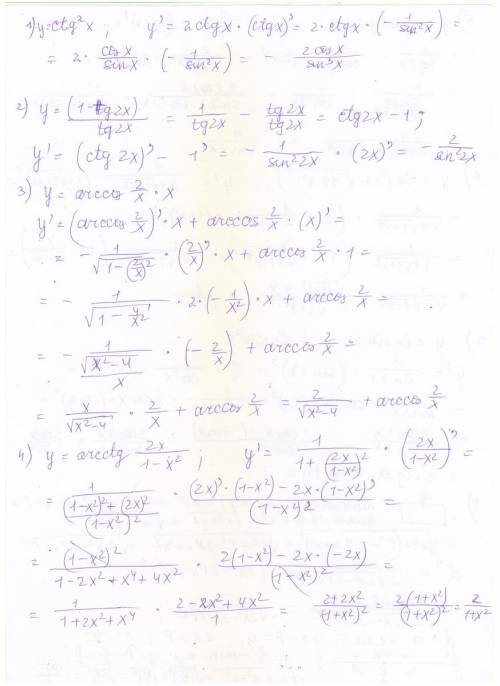 1) y = ctg²x ; y' = 2ctgx · (ctgx)' = 2 · ctgx · (- 1/sin²x) =
= 2 · cosx/sinx · (- 1/sin²x) = - 2cosx/sin³x
2) y = (1-tg2x)/tg2x = 1/tg2x - tg2x/tg2x = ctg2x - 1 ;
y' = (ctg 2x)' - 1' = - 1/sin²2x · (2x)' = - 2/sin²2x
3) y = arccos 2/x · x
y' = (arccos 2/x)' · x + arccos 2/x · (x)' =
= - 1/√(1-(2/x)²) · (2/x)' · x + arccos 2/x · 1 =
= - 1/√(1 - 4/x²) · 2 · (- 1/x²) · x + arccos 2/x =
= - 1/(√(x²-4)/x) · (- 2/x) + arccos 2/x =
= x/√(x²-4) · 2/x + arccos 2/x = 2/√(x²-4) + arccos 2/x
4) y = arcctg 2x/(1-x²) ; y' = 1/(1 + (2x)²/(1-x²)²) · (2x/(1-x²))' =
= 1/(((1-x²)²+(2x)²)/(1-x²)²) · ((2x)' · (1-x²) - 2x · (1-x²)')/(1-x²)² =
= (1-x²)²/(1-2x²+x⁴+4x²) · (2(1-x²) - 2x · (-2x))/(1-x²)² =
= 1/(1+2x²+x⁴) · (2-2x²+4x²)/1 = (2+2x²)/(1+x²)² = 2(1+x²)/(1+x²)² = 2/(1+x²)
...